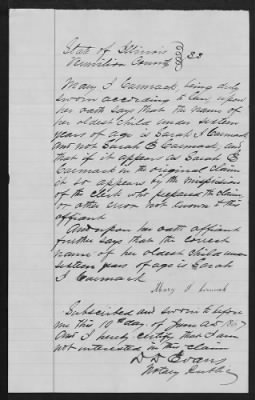 State of Illinois
Vermilion County } SS
Mary I Carmack, being duly
sworn according to law upon
her oath say that the name of
her oldest child under sixteen
years of age is Sarah I Carmack
and not Sarah E Carmack, and
that if it appears as Sarah E
Carmack in the original claim
it so appears by the misprision
of the clerk who prepared the claim
or other error not known to this
affiant
And upon her oath affiant
further says that the correct
name of her oldest child under
sixteen years of age is Sarah
I Carmack
Mary I Carmack
Subscribed and sworn to before
me this 10th day of June AD
And I hereby certify that I am
not interested in this claim
D D Evans
Notary Public